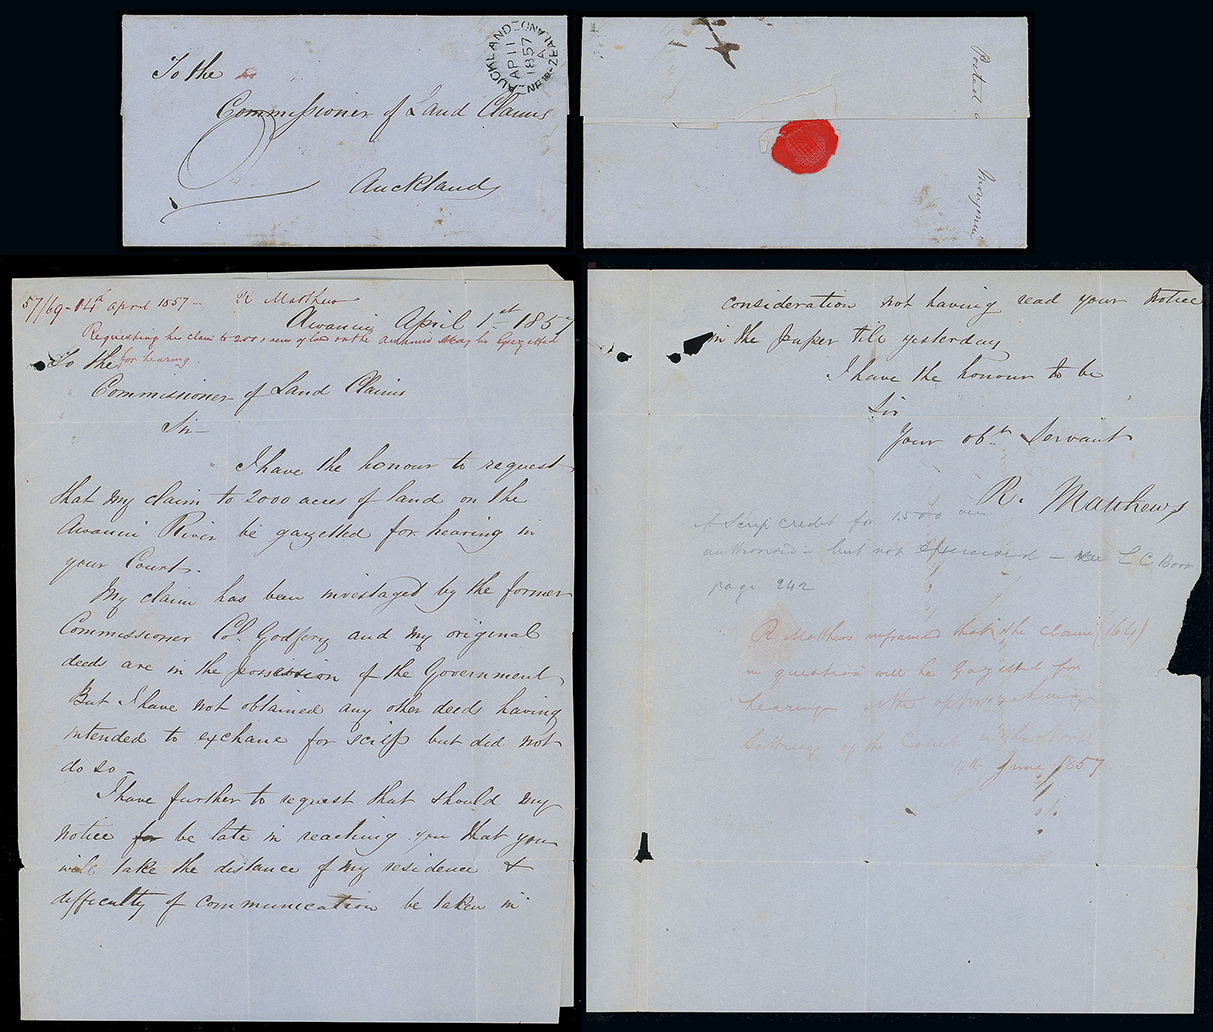 To the
Commissioner of Land Claims
Auckland
AUCKLAND NEW-ZEALAND
AP 11
1857
A
Posted
Mongonui
57/69 - 14th April 1857 - R Matthews
Awanui April 1st 1857
Requesting his claim to 2000 acres of land on the Awanui may be Gazetted
for hearing.
To the
Commissioner of Land Claims
Sir -
I have the honour to request
that my claim to 2000 acres of land on the
Awanui River be gazetted for hearing in
your Court.
My claim has been investaged by the former
Commissioner Col Godfrey and my original
deeds are in the possession of the Government
But I have not obtained any other deeds having
intended to exchane for scrip but did not
do so -
I have further to request that should my
notice for be late in reaching you that you
will take the distance of my residence &
difficulty of communication be taken in
consideration not having read your notice
in the paper till yesterday
I have the honour to be
Sir
Your obt Servant
R. Matthews
Scrip credit for 1500
authorised - but not exercised - L C Book
page 242
R Matthews informed that the claim (164)
in question will be Gazetted for
hearing at the approaching
Sitting of the Court in the North
4th June 1857